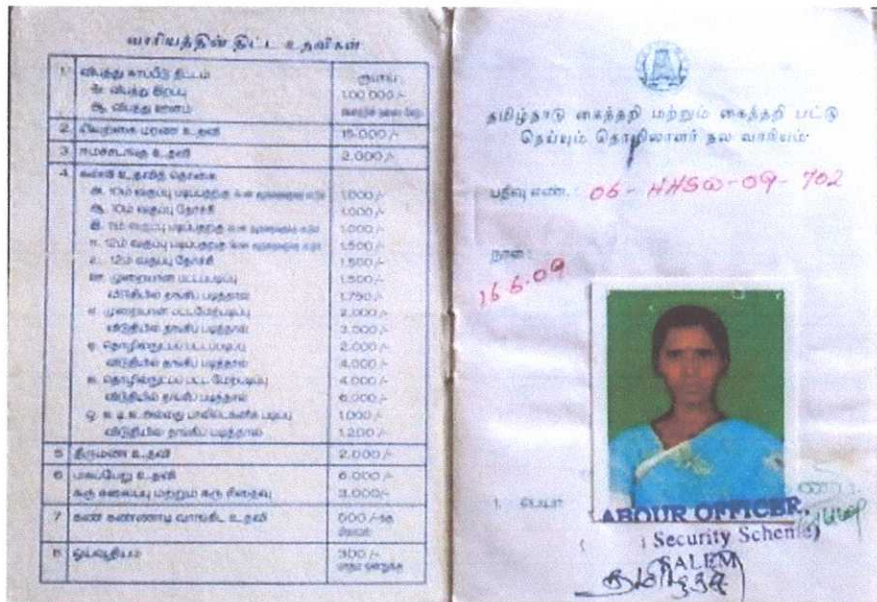 வாரியத்தின் திட்ட உதவிகள்
1 விபத்து காப்பீடு திட்டம் ரூபாய்
அ. விபத்து இறப்பு 1,00,000/-
ஆ. விபத்து ஊனம்
2 இயற்கை மரண உதவி 15,000/-
3 ஈமச்சடங்கு உதவி 2,000/-
4 கல்வி உதவித் தொகை
அ. 10ம் வகுப்பு படிப்பதற்கு 1,000/-
ஆ. 10ம் வகுப்பு தேர்ச்சி 1,000/-
இ. 11ம் வகுப்பு படிப்பதற்கு 1,000/-
ஈ. 12ம் வகுப்பு படிப்பதற்கு 1,500/-
உ. 12ம் வகுப்பு தேர்ச்சி 1,500/-
ஊ. முறையான பட்டப்படிப்பு 1,500/-
விடுதியில் தங்கிப் படித்தால் 1,750/-
எ. முறையான பட்டமேற்படிப்பு 2,000/-
விடுதியில் தங்கிப் படித்தால் 3,000/-
ஏ. தொழில்நுட்பப் பட்டப்படிப்பு 2,000/-
விடுதியில் தங்கிப் படித்தால் 4,000/-
ஐ. தொழில்நுட்பப் பட்ட மேற்படிப்பு 4,000/-
விடுதியில் தங்கிப் படித்தால் 6,000/-
ஒ. ஐ.டி.ஐ. அல்லது பாலிடெக்னிக் படிப்பு 1,000/-
விடுதியில் தங்கிப் படித்தால் 1,200/-
5 திருமண உதவி 2,000/-
6 மகப்பேறு உதவி 6,000/-
கரு கலைப்பு மற்றும் கரு சிதைவு 3,000/-
7 கண் கண்ணாடி வாங்கிட உதவி 500/-
8 ஓய்வூதியம் 300/-
தமிழ்நாடு கைத்தறி மற்றும் கைத்தறி பட்டு
நெய்யும் தொழிலாளர் நல வாரியம்
பதிவு எண். : 06 - HHSW - 09 - 702
நாள் :
16.6.09
1. பெயர்
ABOUR OFFICER,
Security Scheme)
SALEM